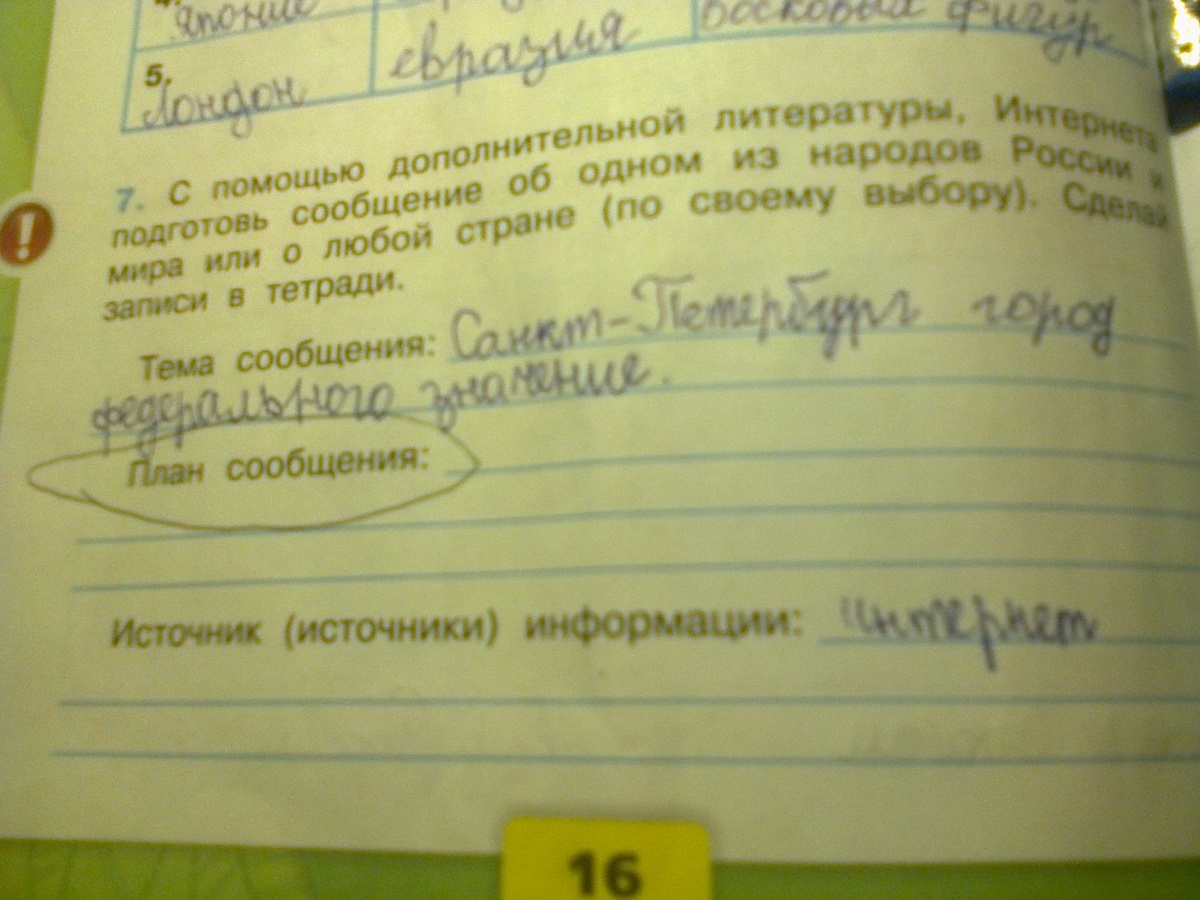 4.
Японие
восковых фигур
5.
Лондон
евразия
7. С помощью дополнительной литературы, Интернета
подготовь сообщение об одном из народов России и
мира или о любой стране (по своему выбору). Сделай
записи в тетради.
Тема сообщения: Санкт-Петербург город
федерального значение.
План сообщения:
Источник (источники) информации: Интернет
16